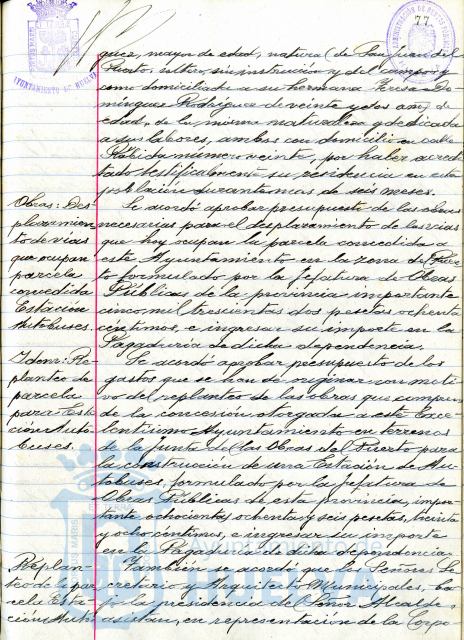 77
AYUNTAMIENTO DE HUELVA
guez, mayor de edad, natural de San Juan del
Puerto, soltero, sin instrucción y del campo y
como domiciliada a su hermana Teresa Do-
mínguez Rodríguez de veinte y dos años de
edad, de la misma naturaleza y dedicada
a sus labores, ambos con domicilio en calle
Rábida número veinte, por haber acredi-
tado testificalmente su residencia en esta
población durante mas de seis meses.
Obras: Des
plazamien
to de vias
que ocupan
parcela
concedida
Estación
Autobuses.
Se acordó aprobar presupuesto de las obras
necesarias para el desplazamiento de las vias
que hoy ocupan la parcela concedida a
este Ayuntamiento en la zona del Puer
to formulado por la Jefatura de Obras
Públicas de la provincia importante
cinco mil trescientas dos pesetas ochenta
centimos, e ingresar su importe en la
Pagaduría de dicha dependencia.
Idem: Re-
planteo de
parcela
para Esta
ción Auto-
buses.
Se acordó aprobar presupuesto de los
gastos que se han de originar con moti
vo del replanteo de las obras que
de la concesión otorgada a este Exce-
lentísimo Ayuntamiento en terrenos
de la Junta de las Obras del Puerto para
la construcción de una Estación de Au-
tobuses, formulado por la Jefatura de
Obras Públicas de esta provincia, impor-
tante ochocientas ochenta y seis pesetas, treinta
y ocho centimos, e ingresar su importe
en la Pagaduría de dicha dependencia.
Replan-
teo de la par
cela Esta-
ción Auto
También se acordó que los Señores Se
cretario y Arquitecto Municipales, ba
jo la presidencia del Señor Alcalde
asistan, en representación de la Corpo-
Ayuntamiento de
HUELVA